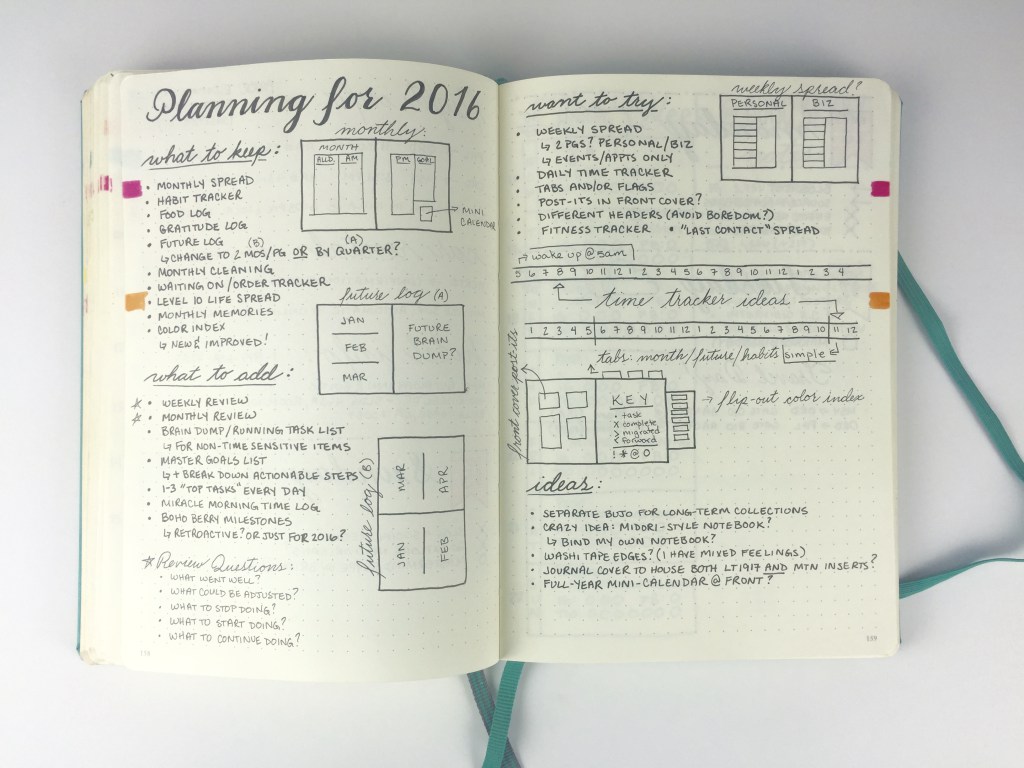 Planning for 2016
monthly:
what to keep:
MONTH
ALLD. AM
PM GOAL
MINI
CALENDAR
• MONTHLY SPREAD
• HABIT TRACKER
• FOOD LOG
• GRATITUDE LOG
• FUTURE LOG
(B) (A)
↳ CHANGE TO 2 MOS/PG OR BY QUARTER?
• MONTHLY CLEANING
• WAITING ON/ORDER TRACKER
• LEVEL 10 LIFE SPREAD
• MONTHLY MEMORIES
• COLOR INDEX
↳ NEW & IMPROVED!
future log (A)
JAN
FEB
MAR
FUTURE
BRAIN
DUMP?
what to add:
* • WEEKLY REVIEW
* • MONTHLY REVIEW
• BRAIN DUMP/RUNNING TASK LIST
↳ FOR NON-TIME SENSITIVE ITEMS
• MASTER GOALS LIST
↳ + BREAK DOWN ACTIONABLE STEPS
• 1-3 "TOP TASKS" EVERY DAY
• MIRACLE MORNING TIME LOG
• BOHO BERRY MILESTONES
↳ RETROACTIVE? OR JUST FOR 2016?
future log (B)
MAR
APR
JAN
FEB
* Review Questions:
• WHAT WENT WELL?
• WHAT COULD BE ADJUSTED?
• WHAT TO STOP DOING?
• WHAT TO START DOING?
• WHAT TO CONTINUE DOING?
158
want to try:
weekly spread?
PERSONAL
BIZ
• WEEKLY SPREAD
↳ 2 PGS? PERSONAL/BIZ
↳ EVENTS/APPTS ONLY
• DAILY TIME TRACKER
• TABS AND/OR FLAGS
• POST-ITS IN FRONT COVER?
• DIFFERENT HEADERS (AVOID BOREDOM?)
• FITNESS TRACKER • "LAST CONTACT" SPREAD
wake up @ 5am
5 6 7 8 9 10 11 12 1 2 3 4 5 6 7 8 9 10 11 12 1 2 3 4
time tracker ideas
1 2 3 4 5 6 7 8 9 10 11 12 1 2 3 4 5 6 7 8 9 10 11 12
simple
tabs: month/future/habits
front cover post-its
KEY
• task
x complete
> migrated
< forward
! * @ O
→ flip-out color index
ideas:
• SEPARATE BUJO FOR LONG-TERM COLLECTIONS
• CRAZY IDEA: MIDORI-STYLE NOTEBOOK?
↳ BIND MY OWN NOTEBOOK?
• WASHI TAPE EDGES? (I HAVE MIXED FEELINGS)
• JOURNAL COVER TO HOUSE BOTH LT1917 AND MTN INSERTS?
• FULL-YEAR MINI-CALENDAR @ FRONT?
159